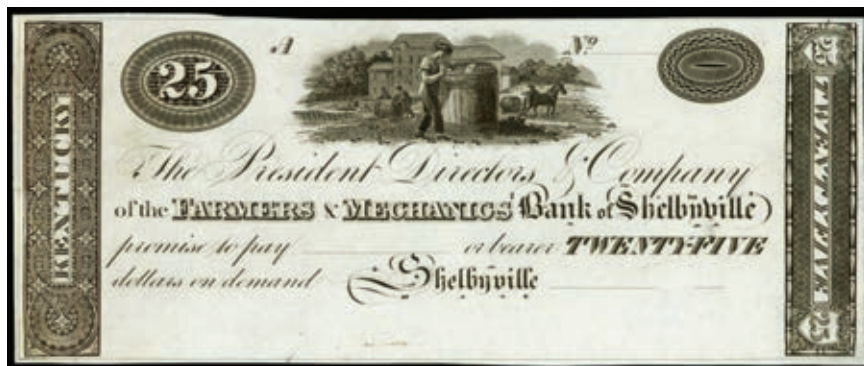 KENTUCKY
25
A
Nº
The President Directors & Company
of the FARMERS & MECHANICS' Bank of Shelbyville
promise to pay or bearer TWENTY-FIVE
dollars on demand Shelbyville
25 TWENTY-FIVE 25